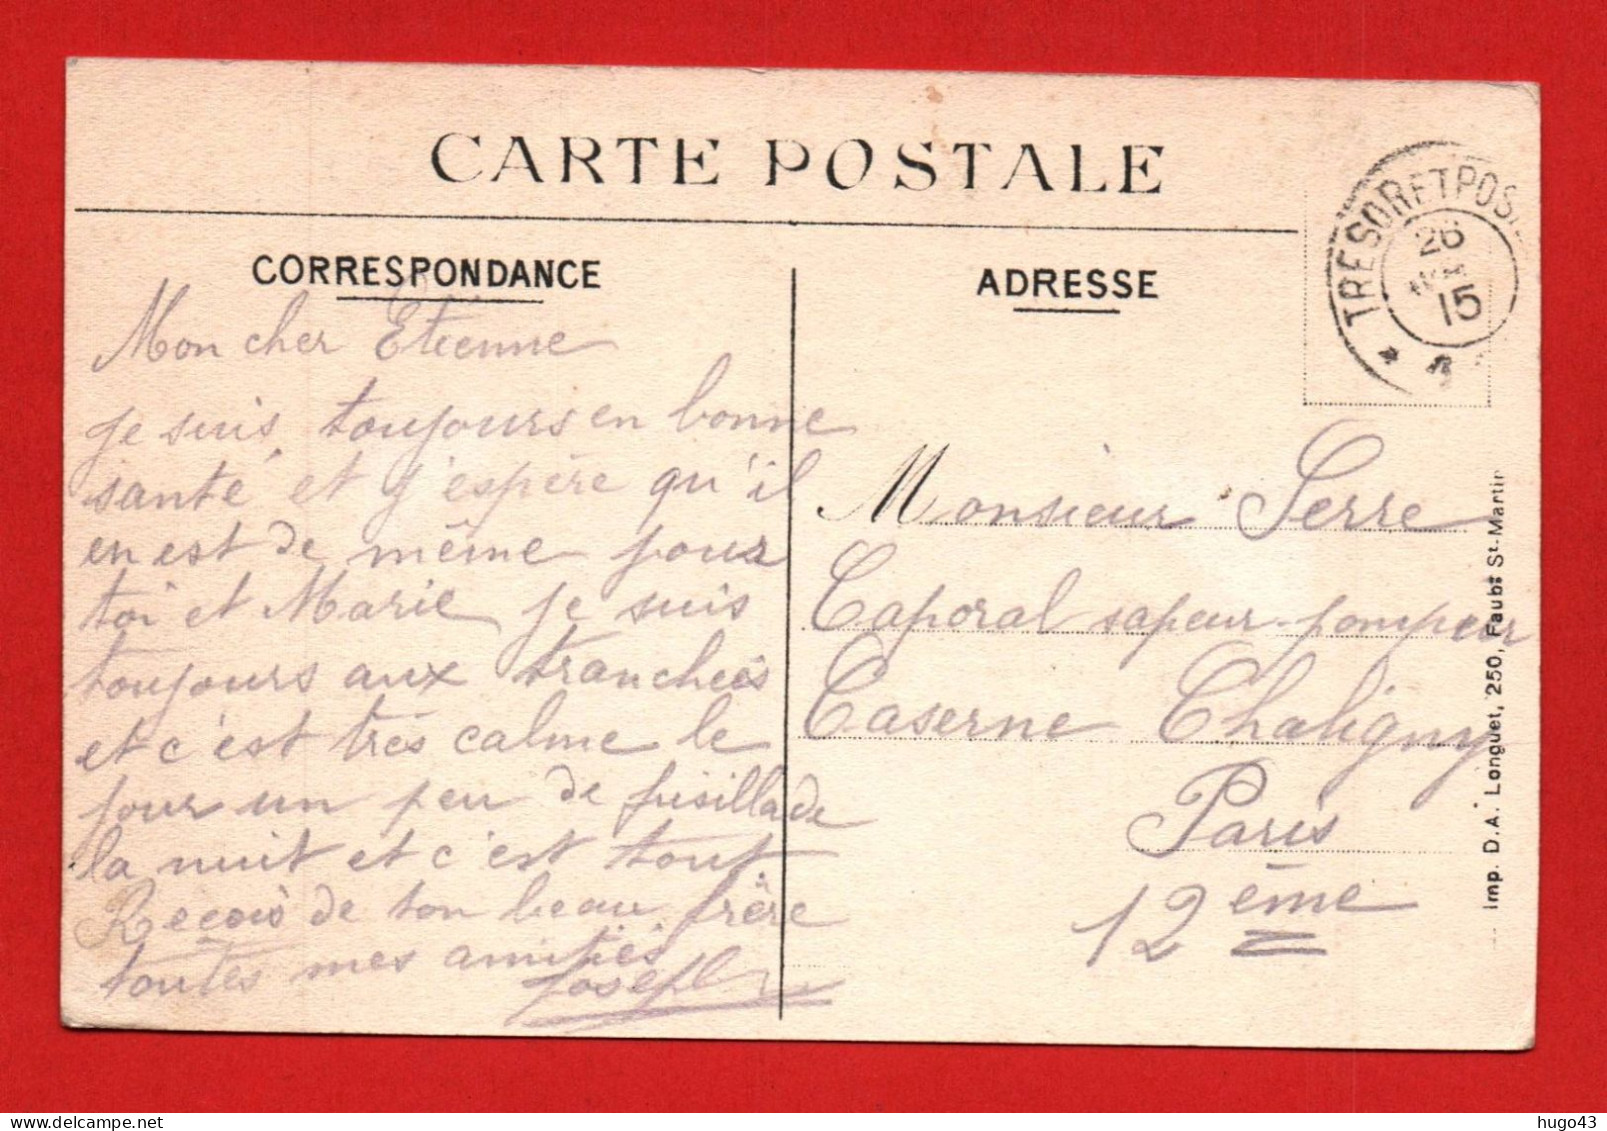 CARTE POSTALE
CORRESPONDANCE
Mon cher Etienne
je suis toujours en bonne
santé et j'espère qu'il
en est de même pour
toi et Marie je suis
toujours aux tranchées
et c'est très calme le
jour un peu de fusillade
la nuit et c'est tout.
Reçois de ton beau frère
toutes mes amitiés
Joseph
ADRESSE
TRESOR ET POS
26
15
Monsieur Serre
Caporal sapeur-pompeur
Caserne Chaligny
Paris
12ème
Imp. D.A. Longuet, 250, Faubg St-Martin
hugo43